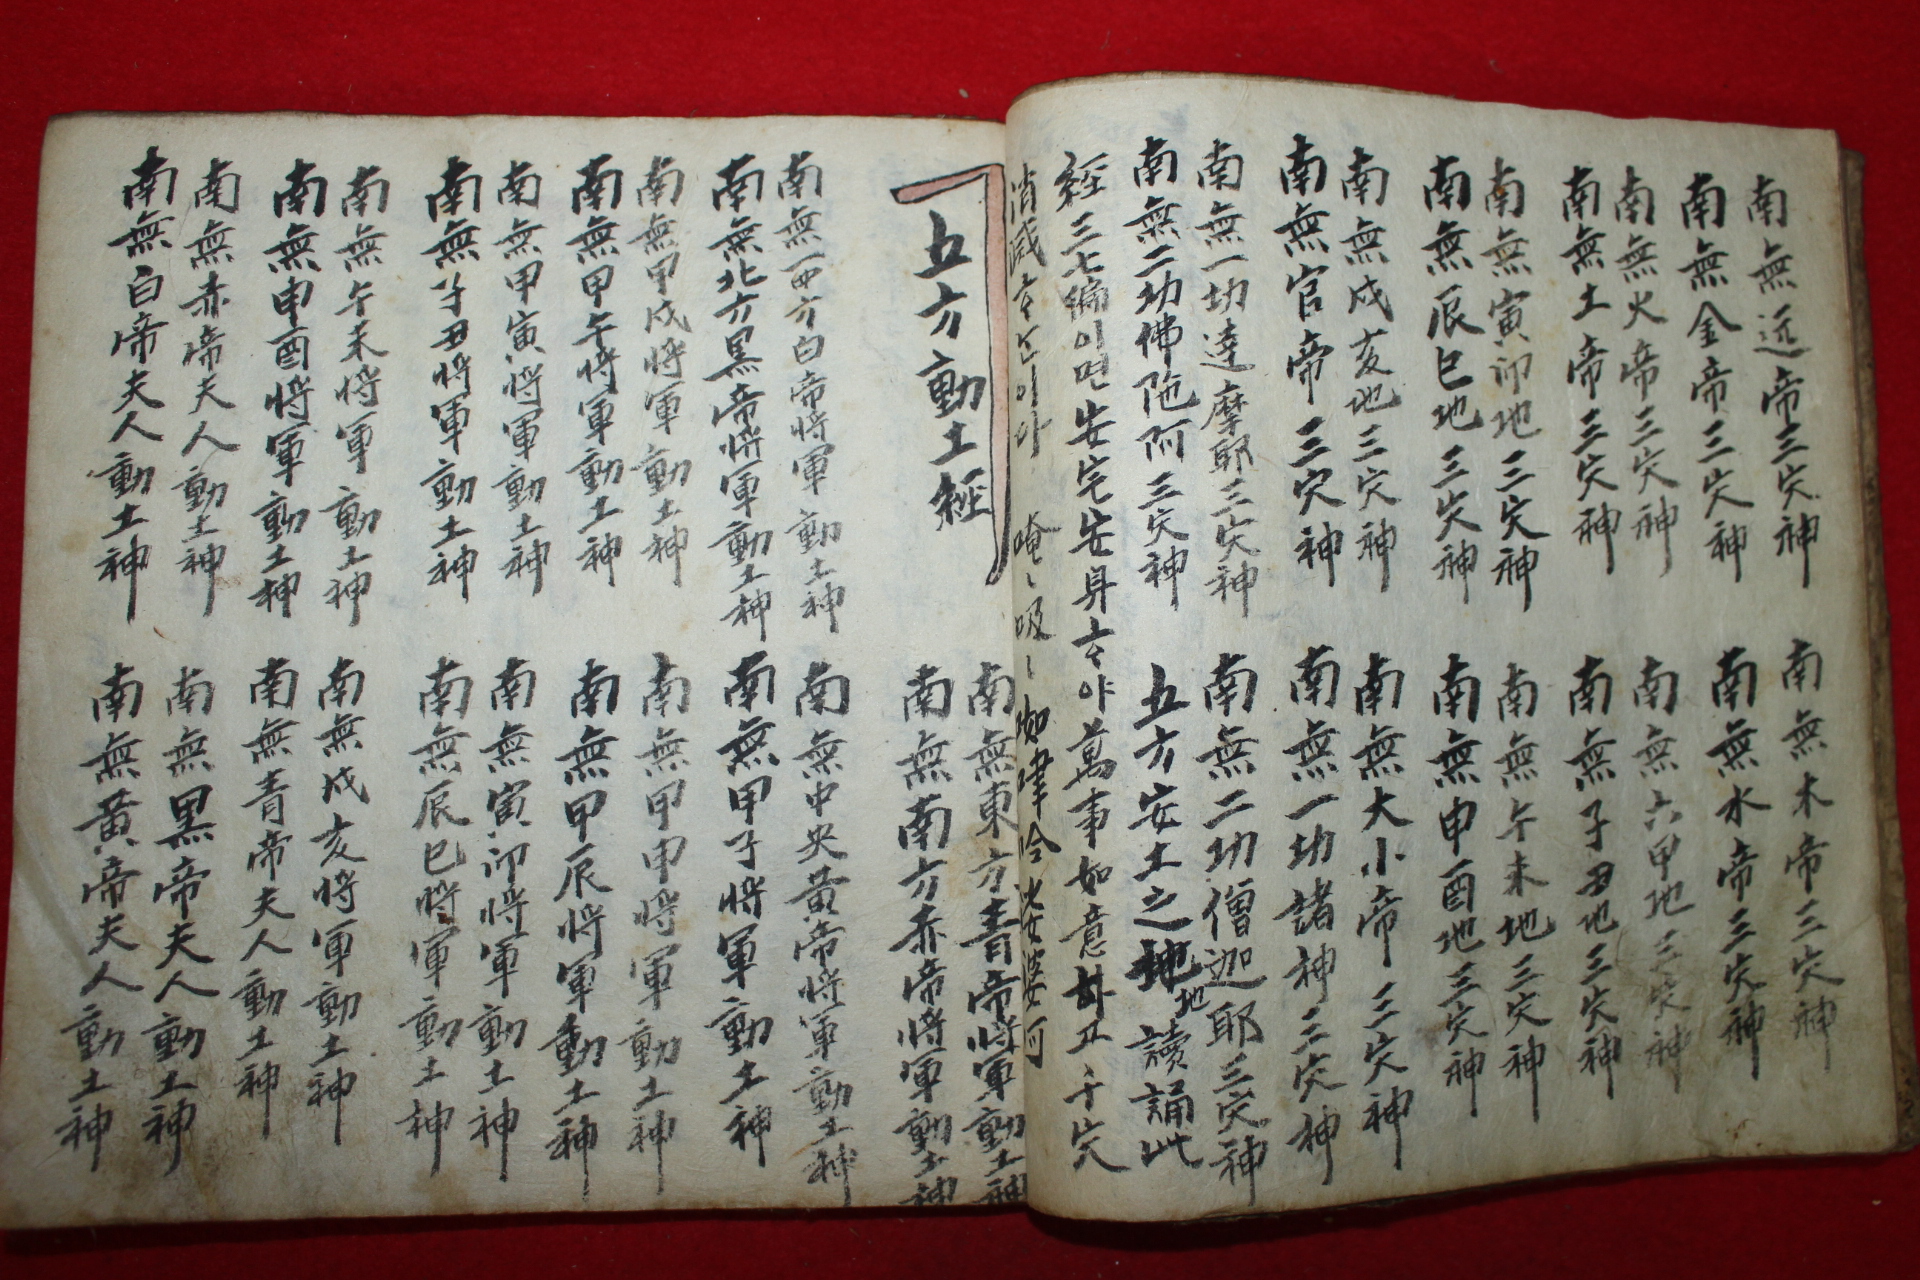 南無远帝三灾神 南無木帝三灾神
南無金帝三灾神 南無水帝三灾神
南無火帝三灾神 南無六甲地三灾神
南無土帝三灾神 南無子丑地三灾神
南無寅卯地三灾神 南無午未地三灾神
南無辰巳地三灾神 南無申酉地三灾神
南無戌亥地三灾神 南無大小帝三灾神
南無官帝三灾神 南無一功諸神三灾神
南無一功達摩耶三灾神 南無二功僧迦耶三灾神
南無二功佛陁阿三灾神 五方安土之地讀誦此
經三七编이면 安宅安身ᄒᆞ야 萬事如意ᄒᆞ고 千灾
消滅ᄒᆞᄂᆞ이아 唵〻吸〻 娑婆呵
五方動土經 南無東方青帝將軍動土神
南無南方赤帝將軍動土神
南無西方白帝將軍動土神 南無中央黃帝將軍動土神
南無北方黑帝將軍動土神 南無甲子將軍動土神
南無甲戌將軍動土神 南無甲申將軍動土神
南無甲午將軍動土神 南無甲辰將軍動土神
南無甲寅將軍動土神 南無寅卯將軍動土神
南無子丑將軍動土神 南無辰巳將軍動土神
南無午未將軍動土神 南無戌亥將軍動土神
南無申酉將軍動土神 南無青帝夫人動土神
南無赤帝夫人動土神 南無黑帝夫人動土神
南無白帝夫人動土神 南無黃帝夫人動土神